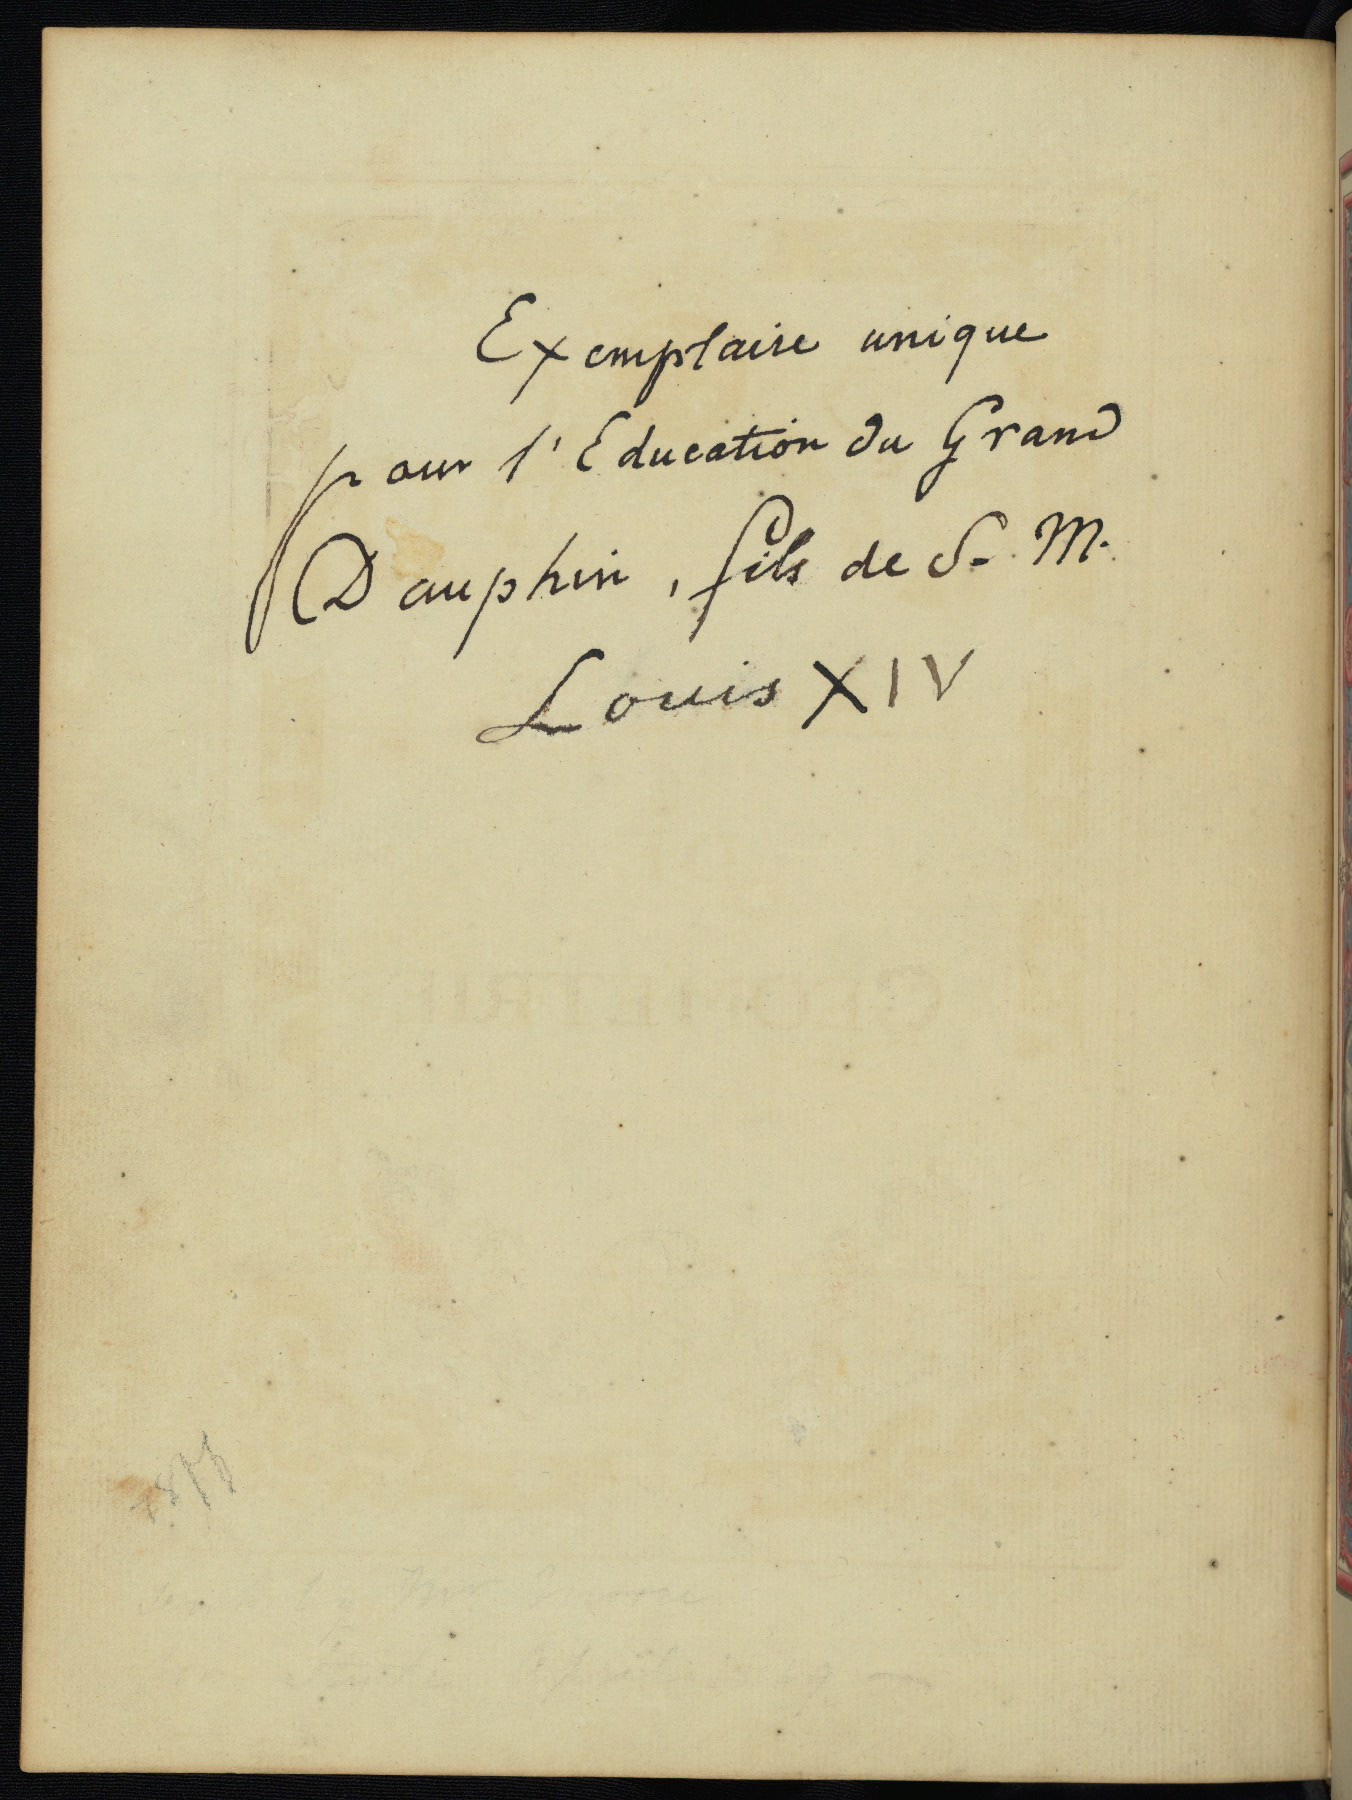 Exemplaire unique
pour l'Education du Grand
Dauphin, fils de S. M.
Louis XIV
GEOMETRI